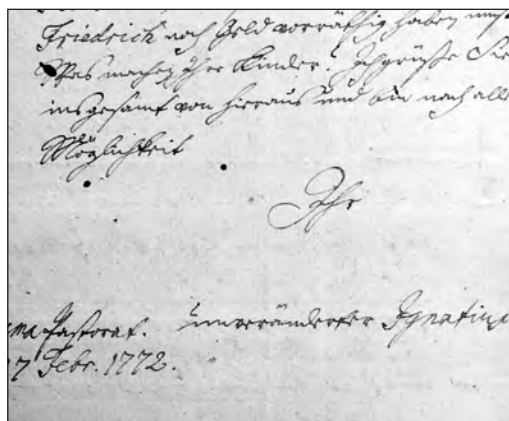 Friedrich noch Geld vorräthig haben muß
Was machen Ihre Kinder? Ich grüße Sie
insgesamt von hieraus und bin nach all
Möglichkeit
Ihr
Pastorat. unveränderter Ignatius
7 Febr. 1772.